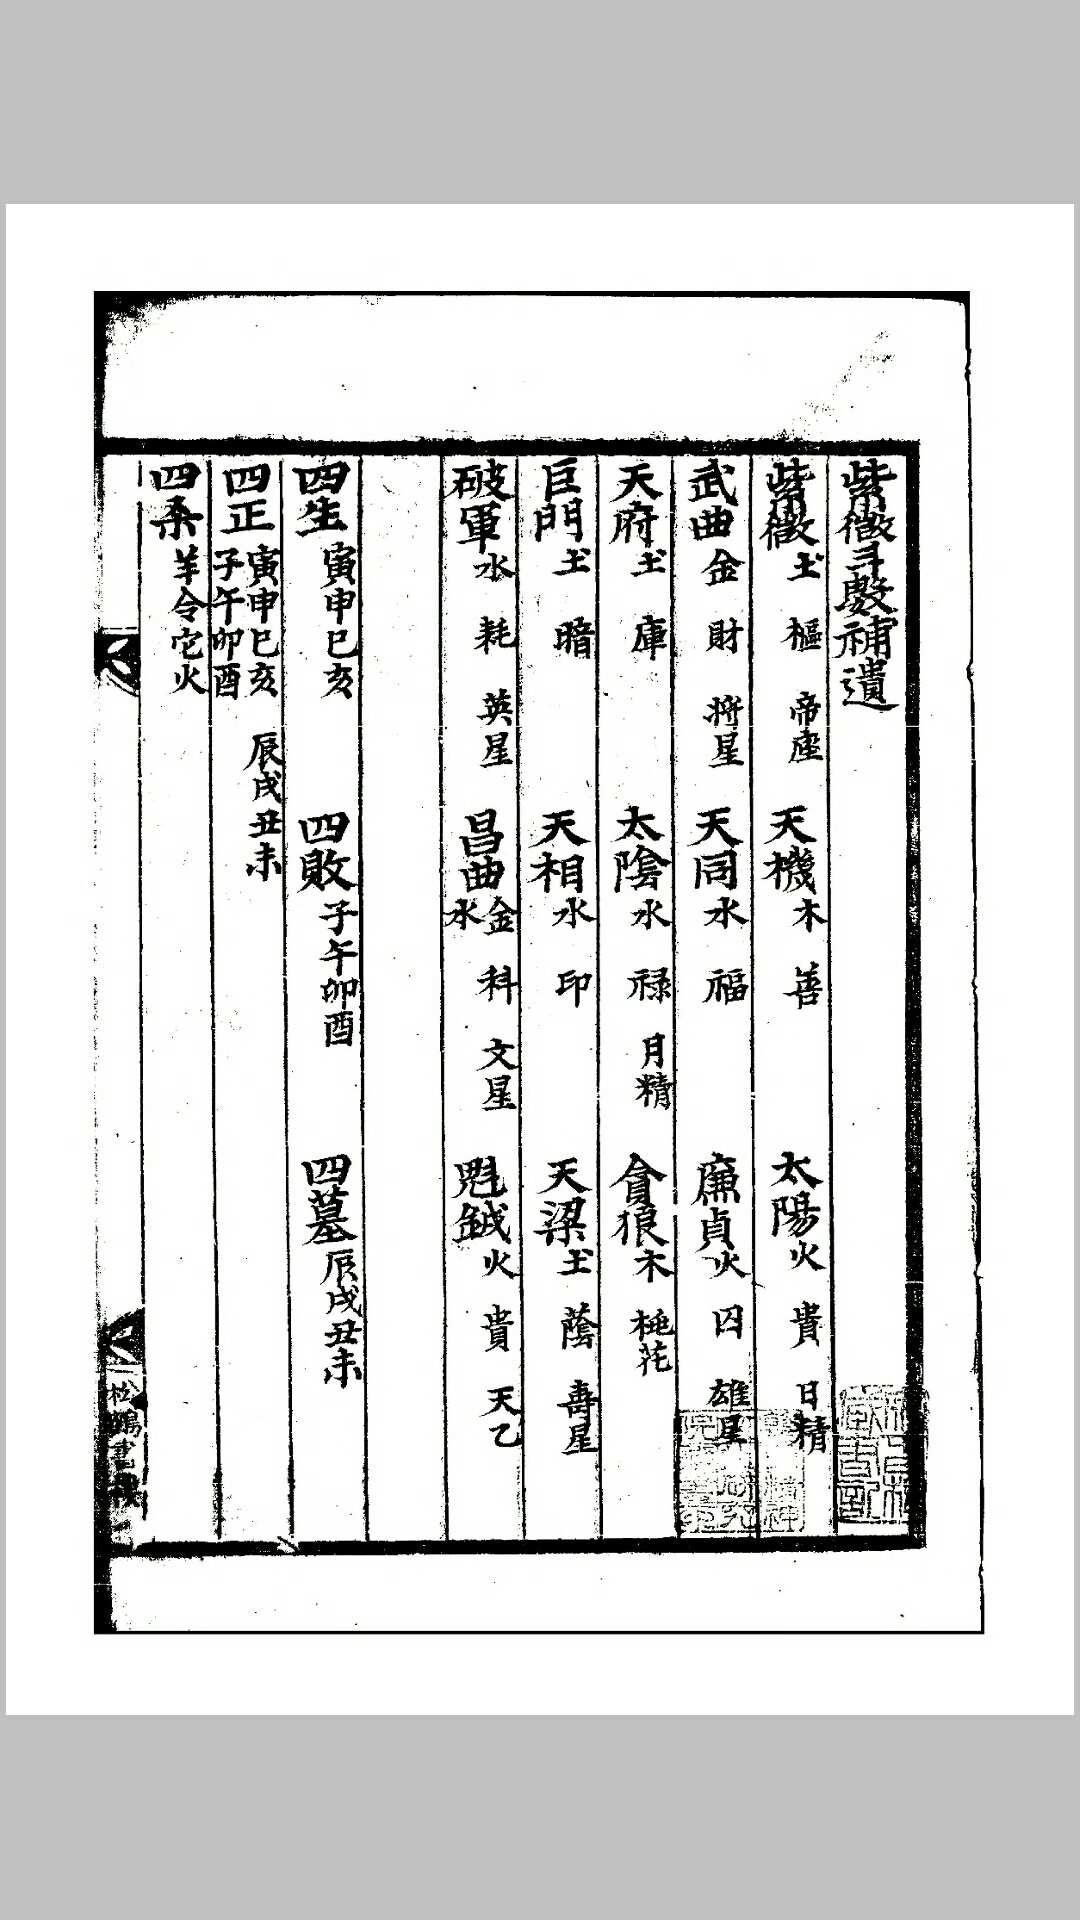 紫微斗數補遺
紫微土 樞 帝座 天機木 善 太陽火 貴 日精
武曲金 財 將星 天同水 福 廉貞火 囚 雄星
天府土 庫 太陰水 祿 月精 貪狼木 桃花
巨門土 暗 天相水 印 天梁土 蔭 壽星
破軍水 耗 英星 昌曲金水 科 文星 魁鉞火 貴 天乙
四生寅申巳亥 四敗子午卯酉 四墓辰戌丑未
四正寅申巳亥 辰戌丑未
子午卯酉
四柔羊令它火